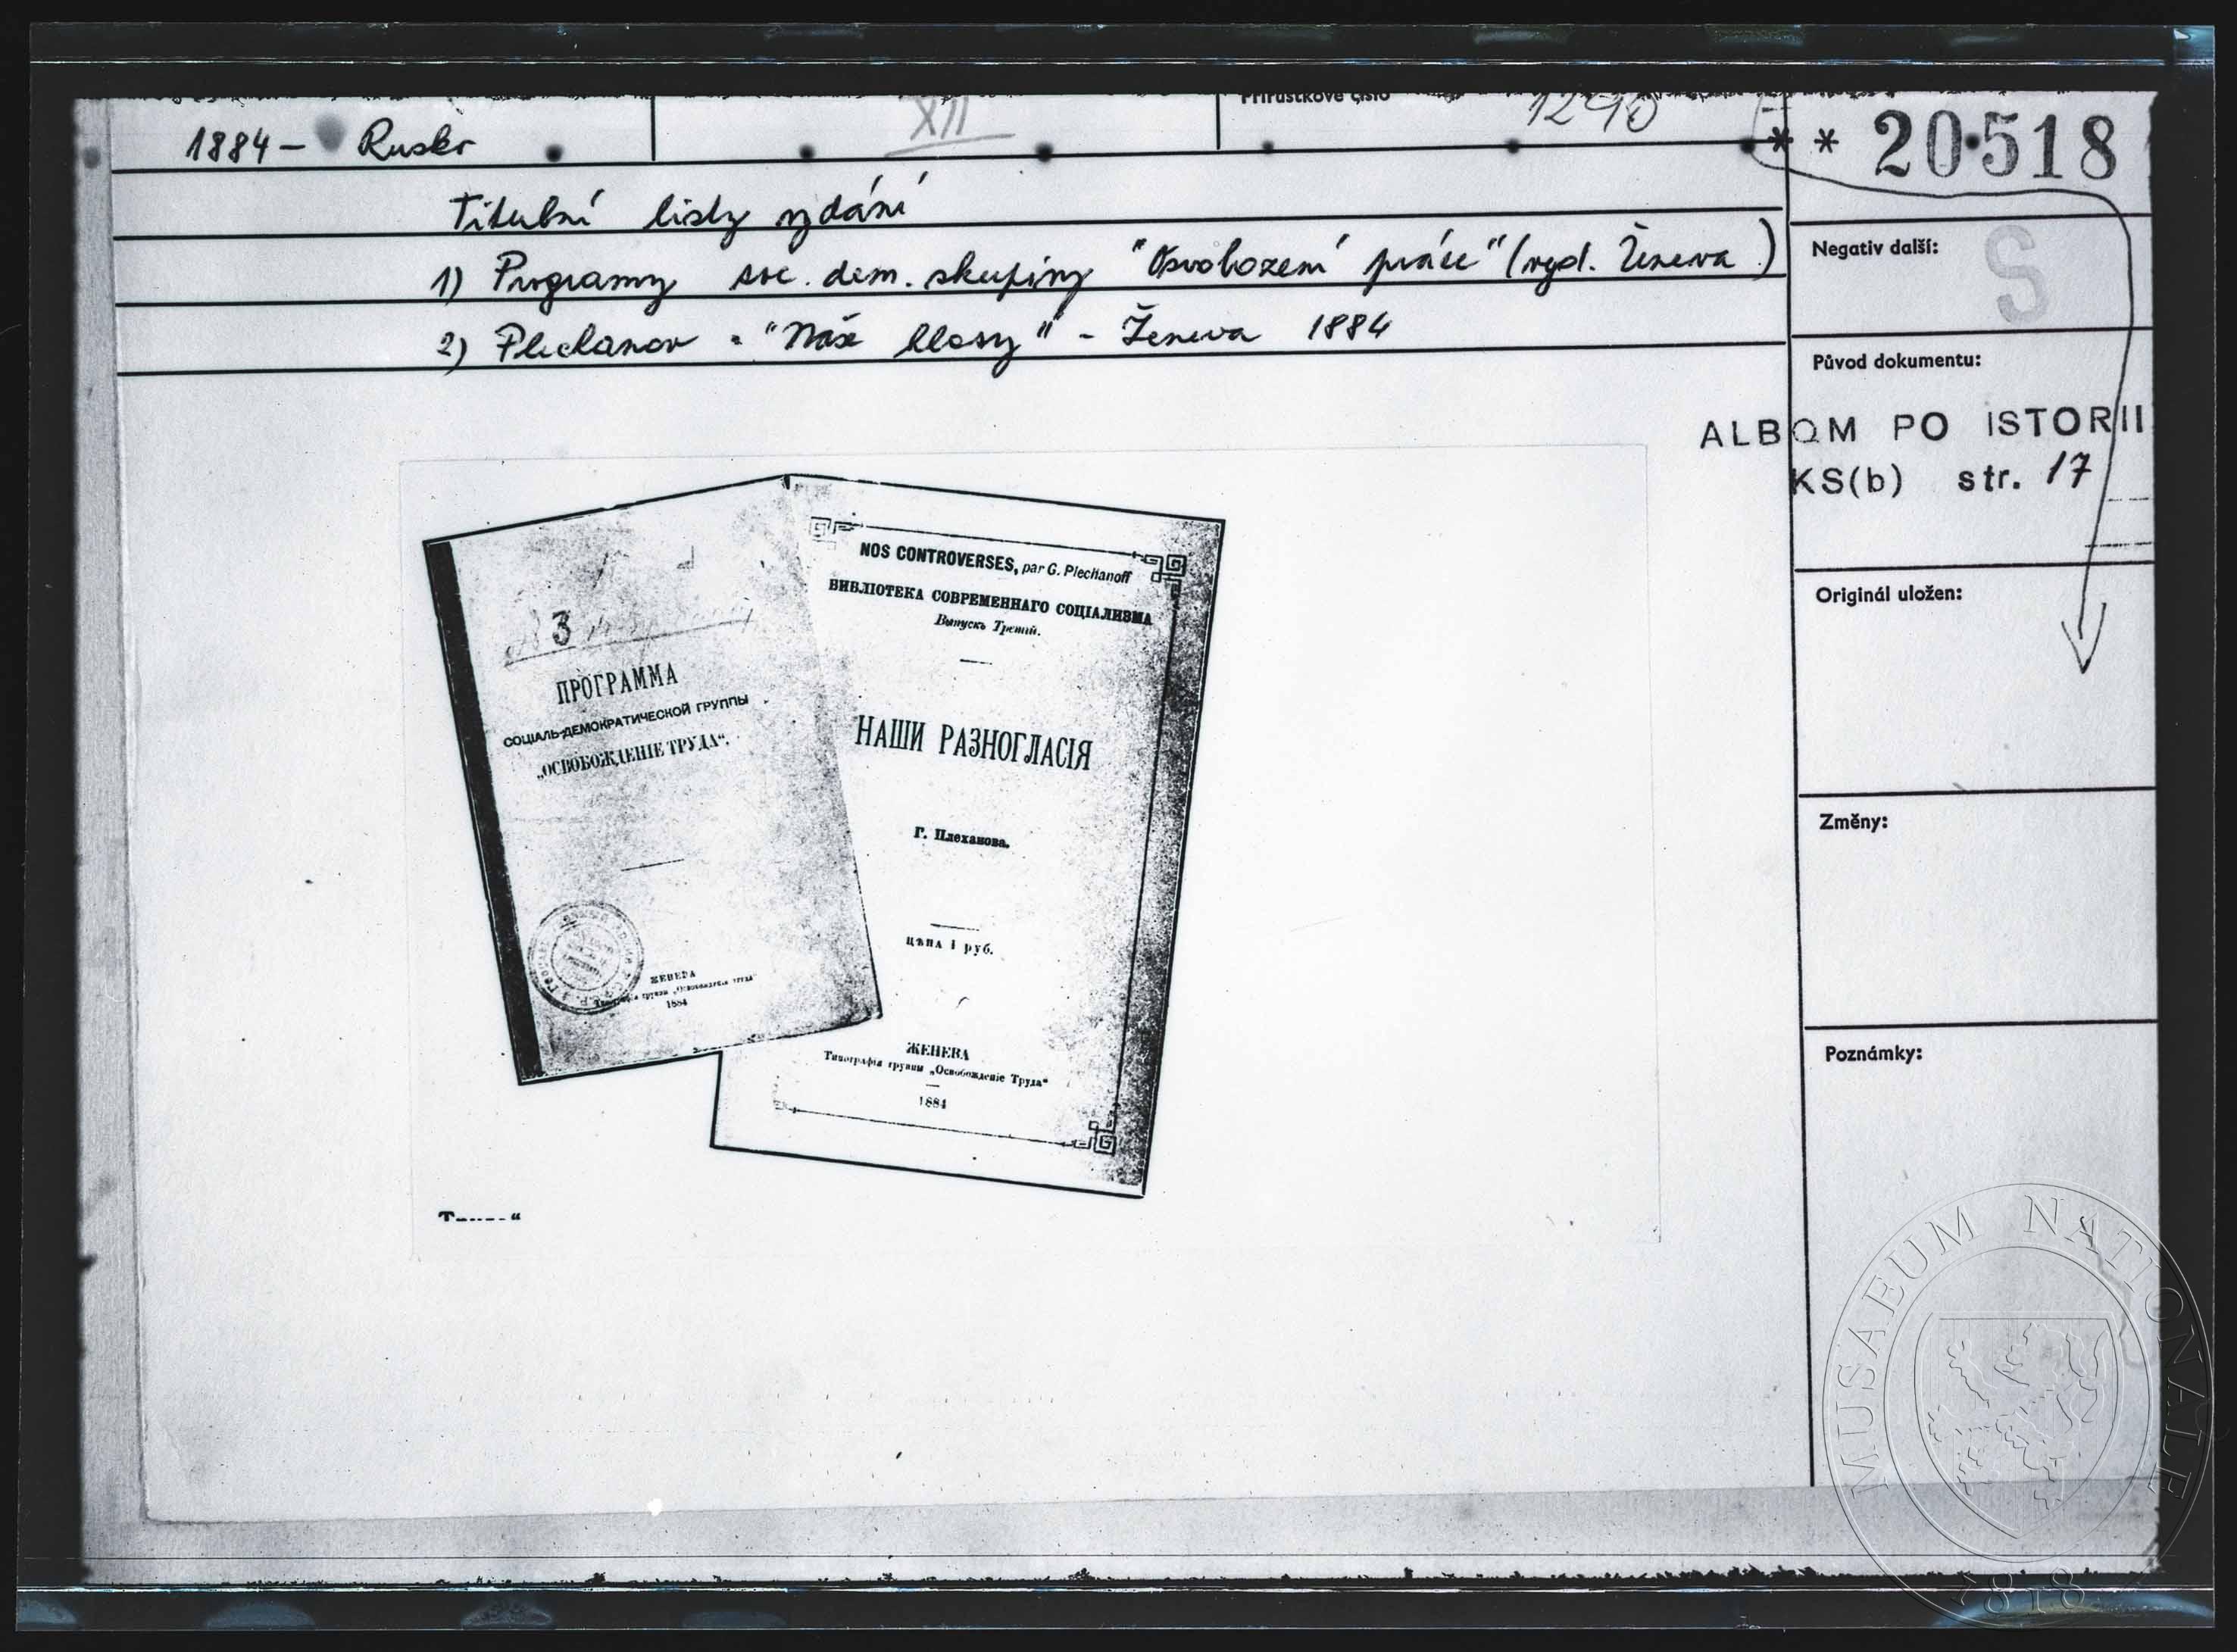 Přírůstkové číslo
1884 – Rusko
XII
1290
** 20518
Titulní listy vydání
1) Programy soc. dem. skupiny "Osvobození práce" (vyd. Ženeva)
2) Plechanov - "Naše hlasy" - Ženeva 1884
Negativ další:
S
Původ dokumentu:
ALBOM PO ISTORII
KS(b) str. 17
Originál uložen:
Změny:
Poznámky:
3
ПРОГРАММА
СОЦІАЛЬ-ДЕМОКРАТИЧЕСКОЙ ГРУППЫ
„ОСВОБОЖДЕНІЕ ТРУДА“.
ЖЕНЕВА
Типографія группы „Освобожденія труда“
1884
NOS CONTROVERSES, par G. Plechanoff
БИБЛІОТЕКА СОВРЕМЕННАГО СОЦІАЛИЗМА
Выпускъ Третій.
НАШИ РАЗНОГЛАСІЯ
Г. Плеханова.
ЦѢНА 1 руб.
ЖЕНЕВА
Типографія группы „Освобожденіе Труда“
1884
MUSAEUM NATIONALE
1818